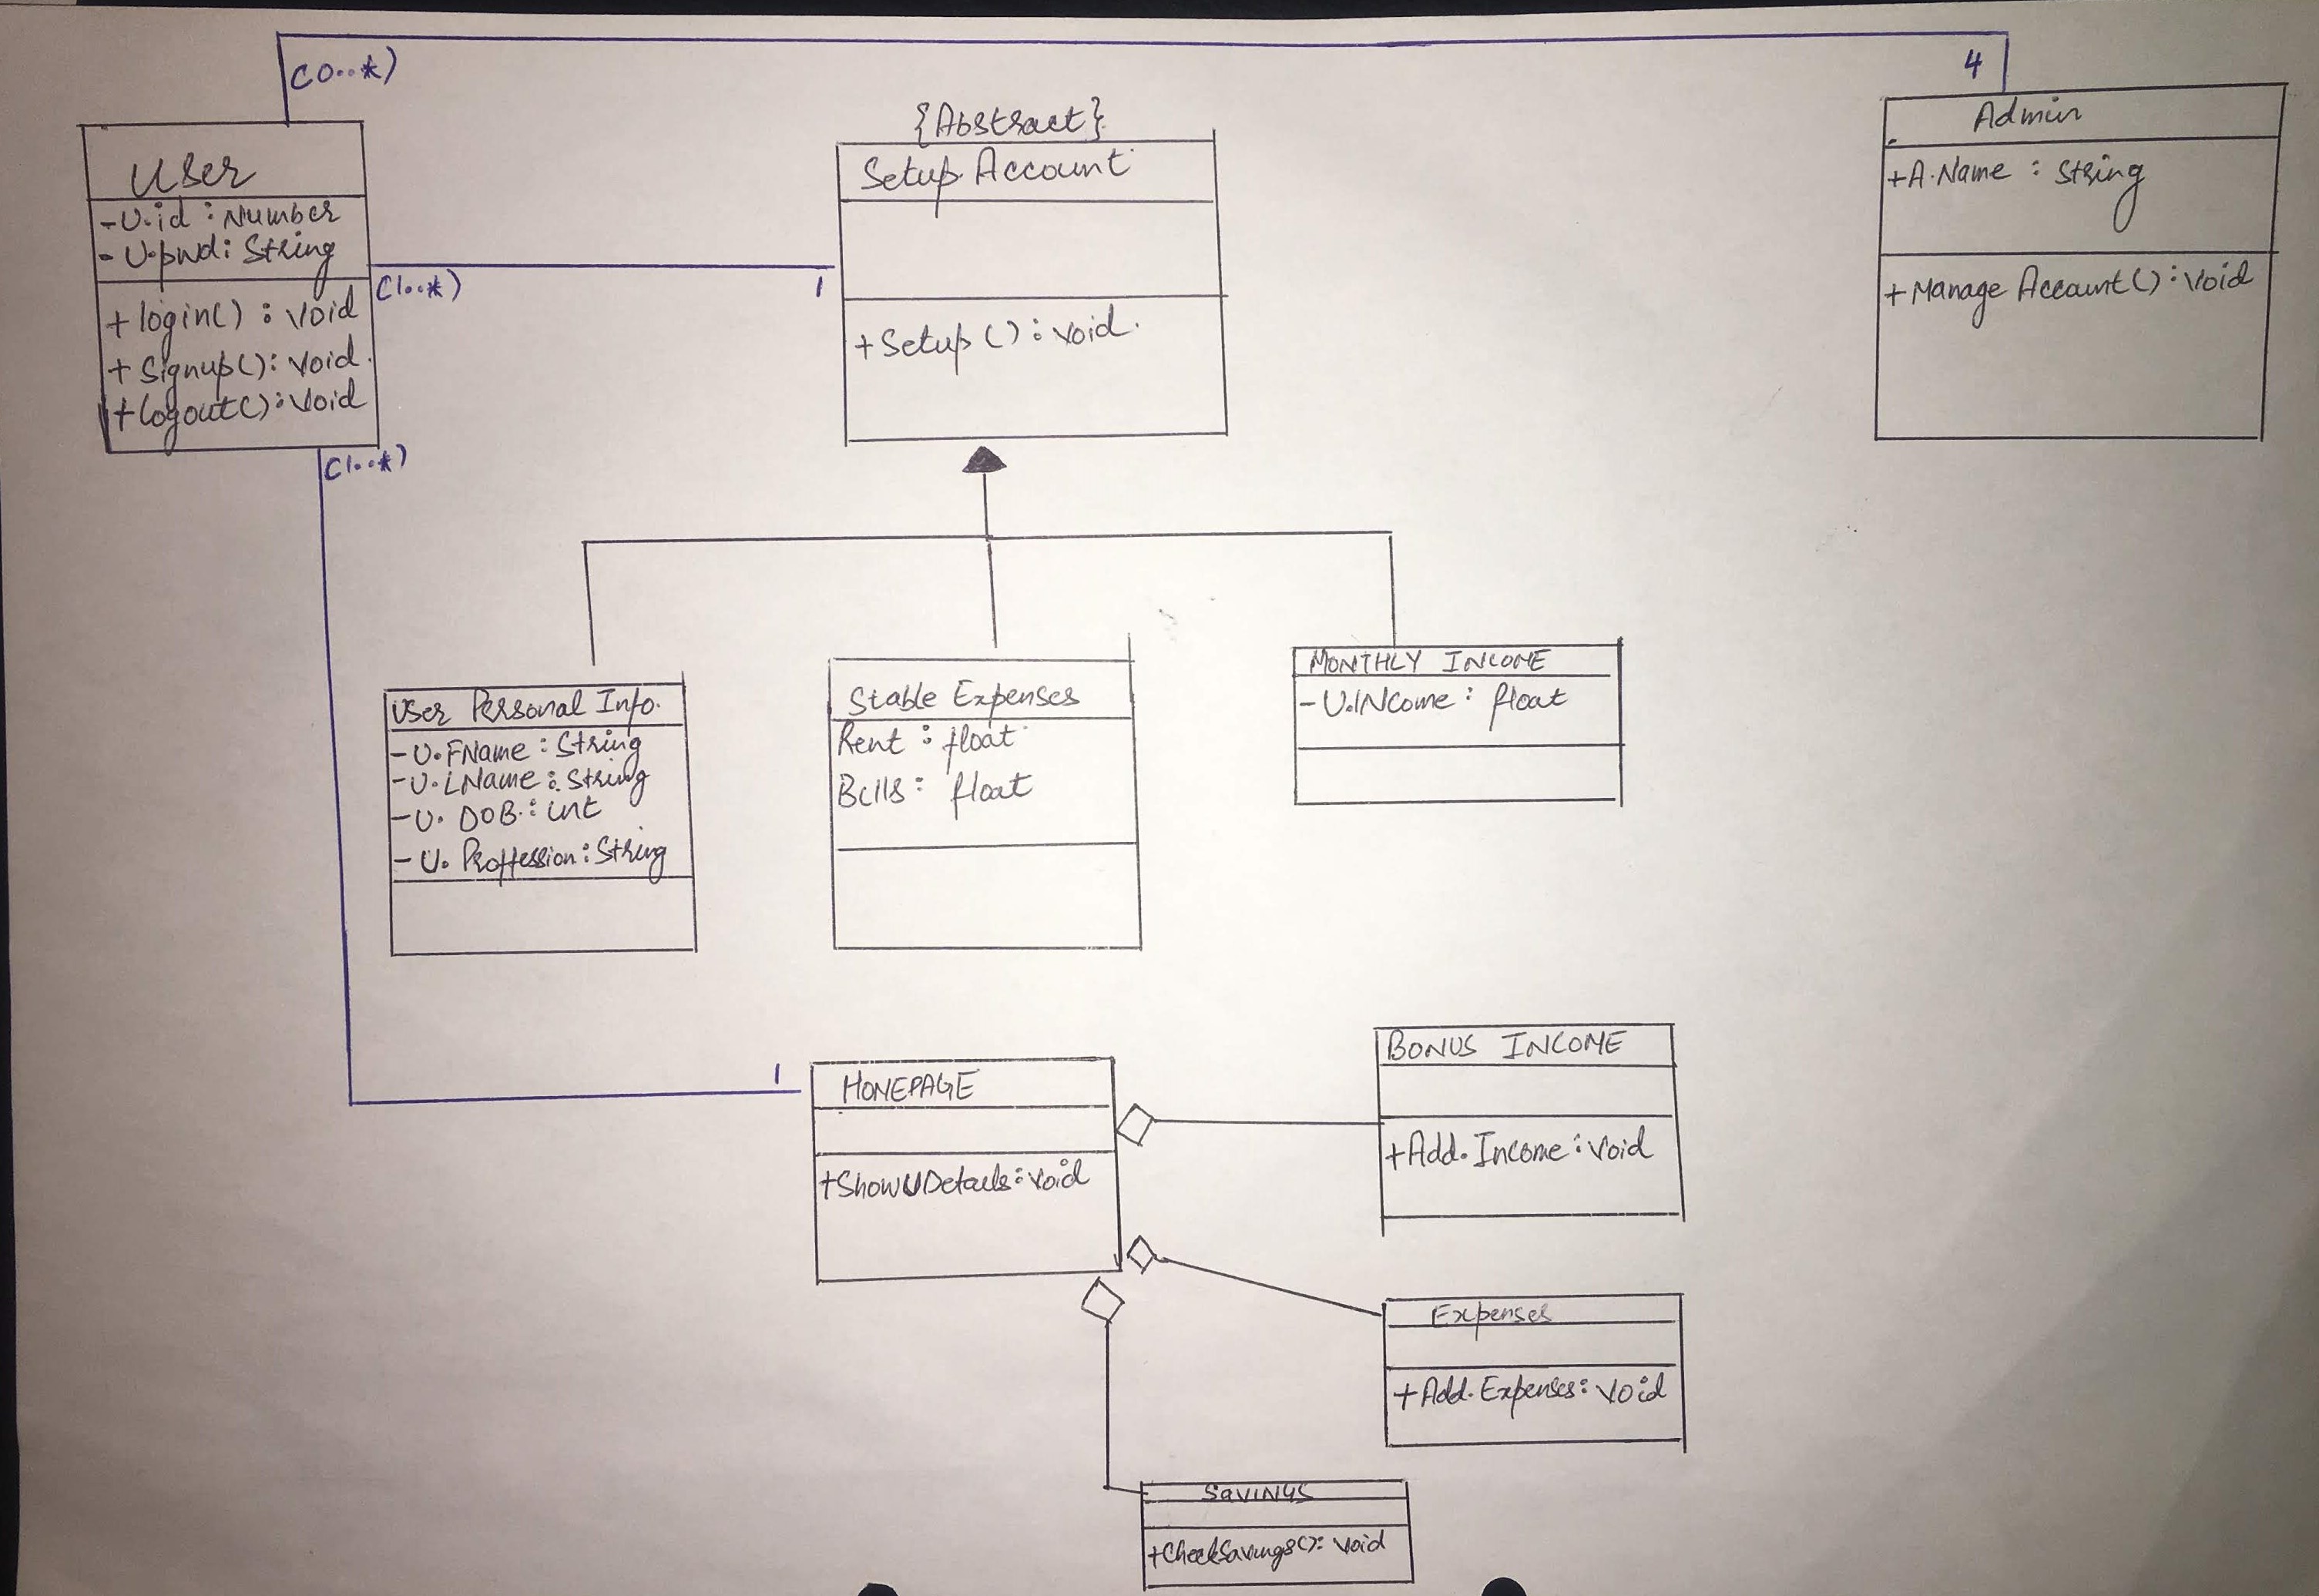 (0..*)
4
User
-U.id : Number
- U.pwd : String
+ login() : void
+ Signup() : void.
+ logout() : void
(1..*)
1
(1..*)
{Abstract}
Setup Account
+ Setup () : void.
Admin
+A.Name : String
+ Manage Account() : void
User Personal Info.
- U.FName : String
- U.LName : String
- U. DOB : int
- U. Proffession : String
Stable Expenses
Rent : float
Bills : float
MONTHLY INCOME
- U.INCome : float
1
HOMEPAGE
+ShowUDetails : void
BONUS INCOME
+Add.Income : void
Expenses
+Add.Expenses : void
SAVINGS
+CheckSavings() : void